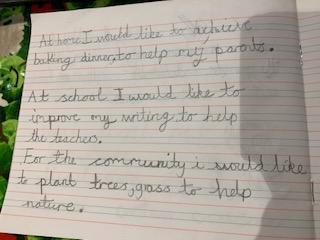 At home I would like to achieve
baking dinner, to help my parents.
At school I would like to
improve my writing to help
the teachers.
For the community i would like
to plant trees, grass to help
nature.